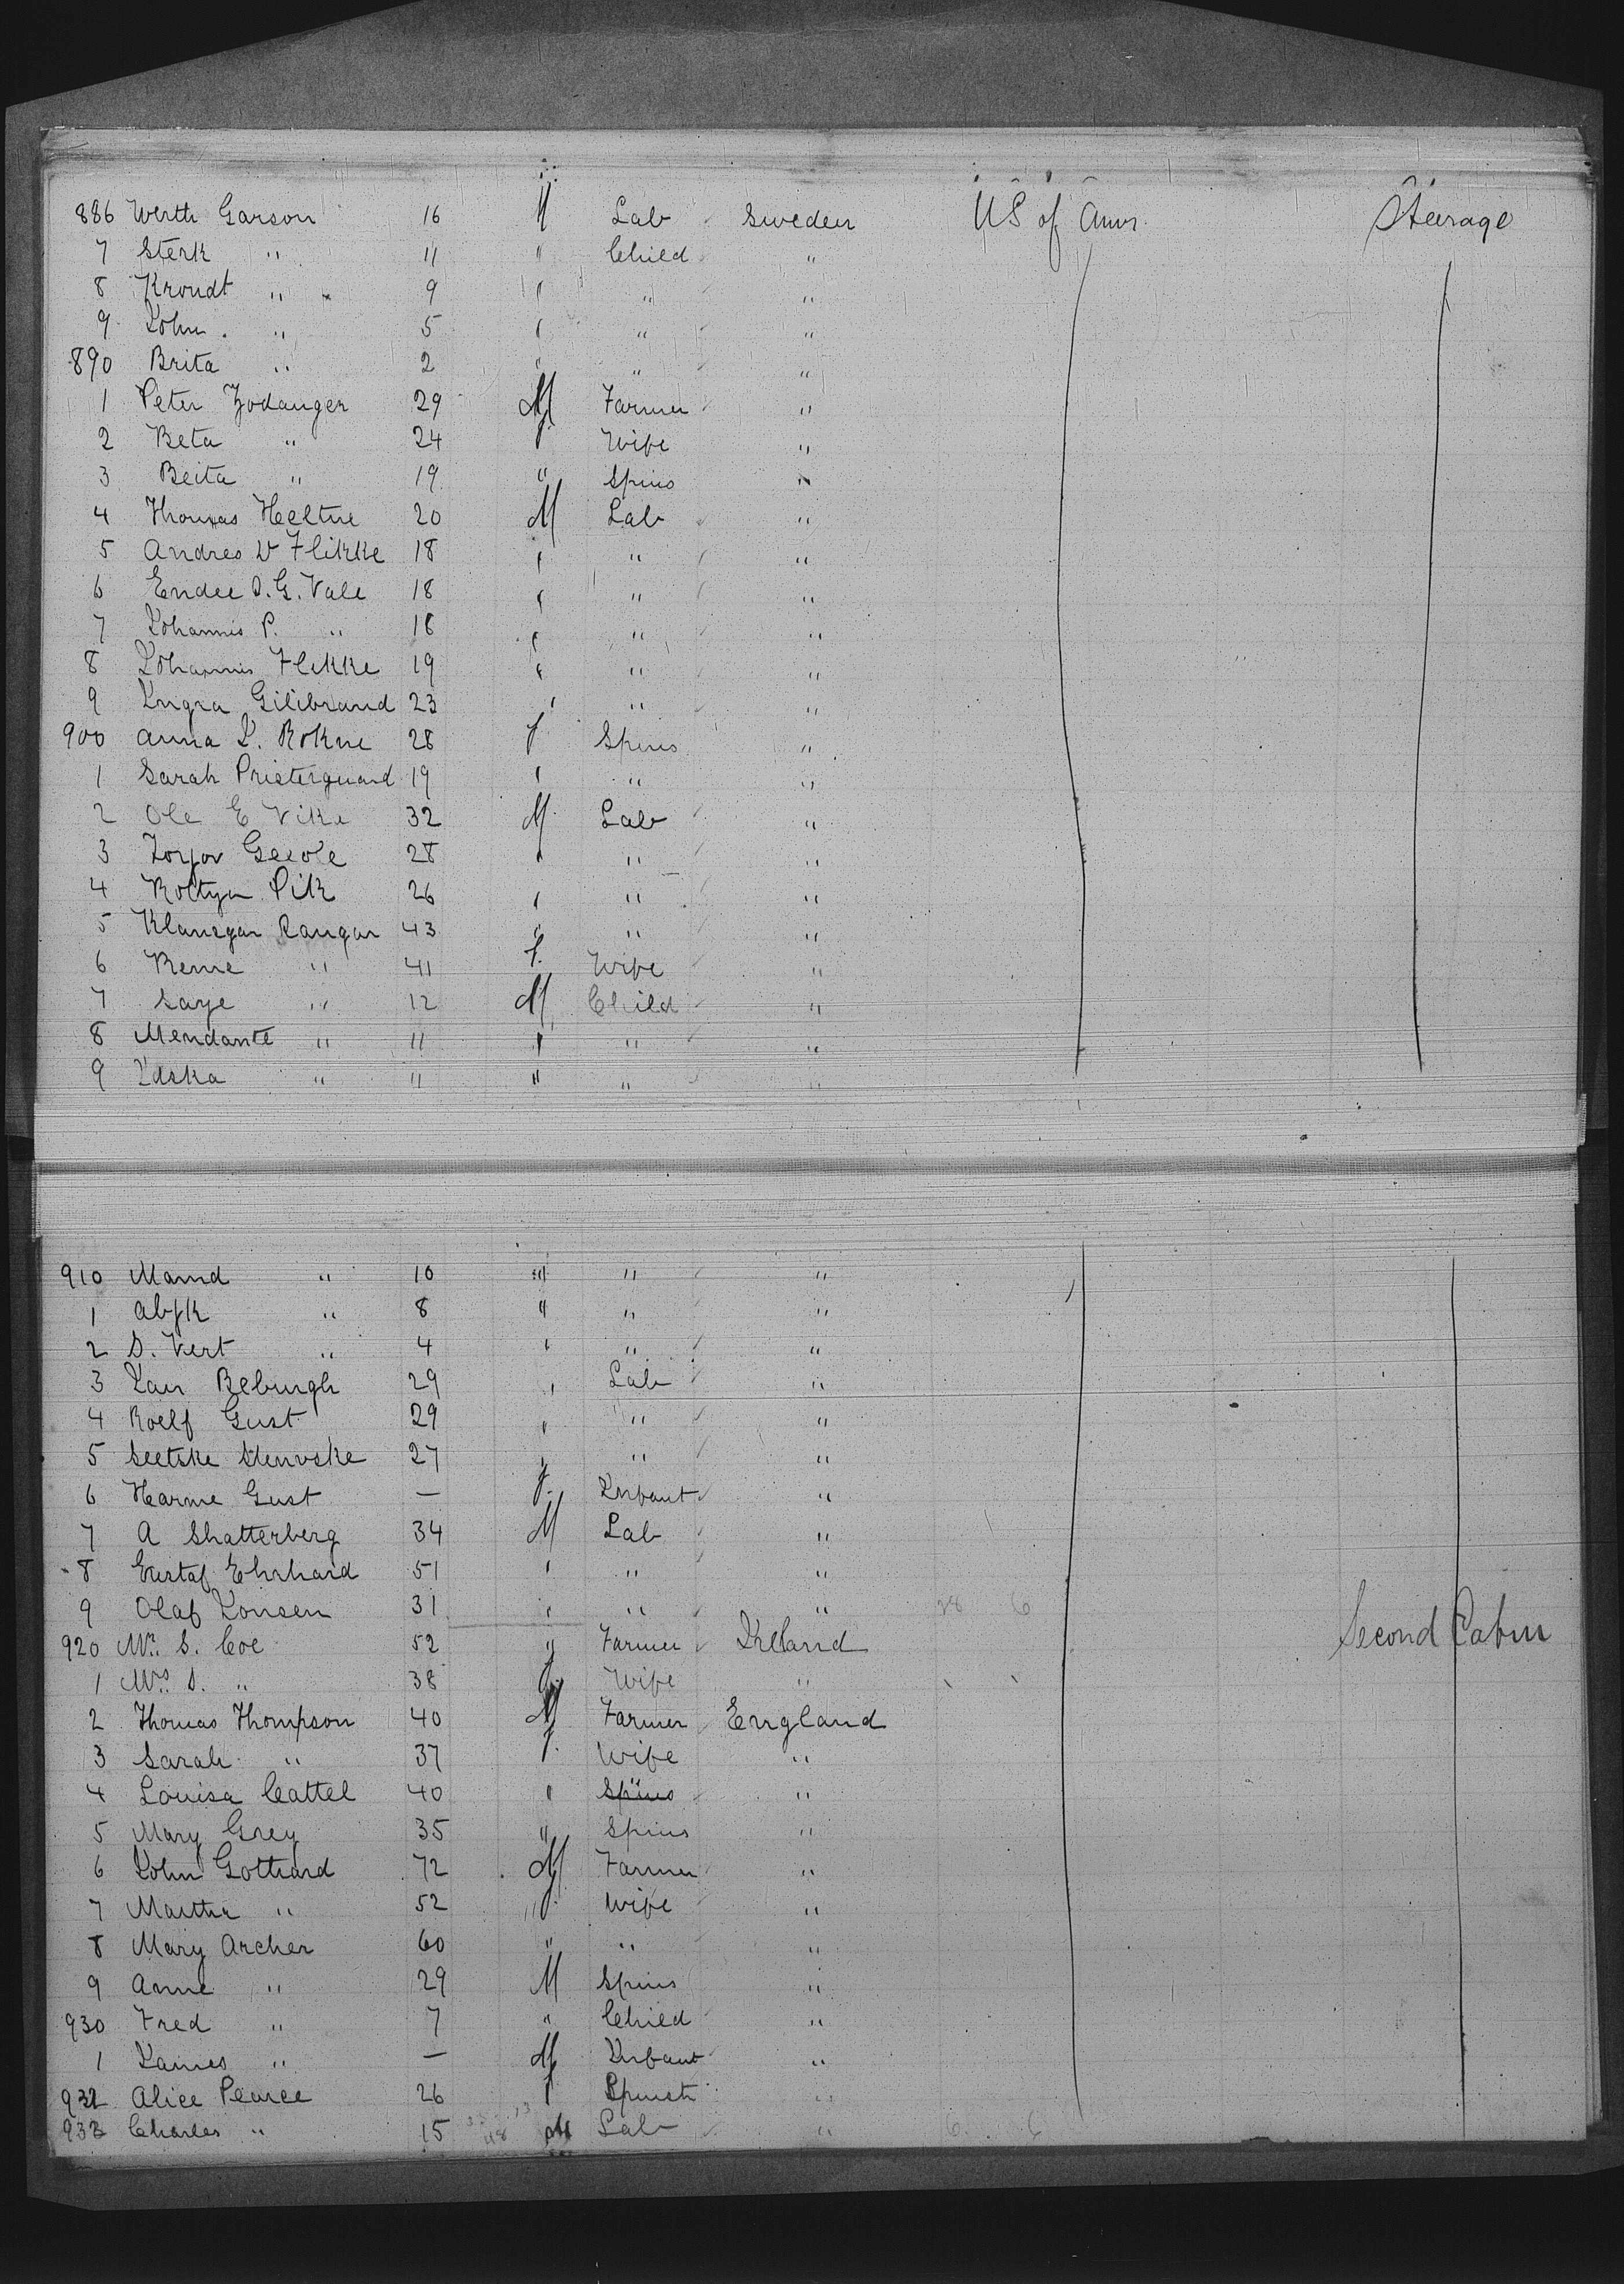 886 Werth Garson 16 M Lab Sweden US of Amr. Steerage
7 Sterk " 11 " Child "
8 Kroudt " 9 " " "
9 John " 5 " " "
890 Brita " 2 " " "
1 Peter Zodanger 29 M Farmer "
2 Beta " 24 f Wife "
3 Beita " 19 " Spins "
4 Thomas Heltne 20 M Lab "
5 Andres V Flikke 18 " " "
6 Endee S. G. Vale 18 " " "
7 Johannis P. " 18 " " "
8 Johannis Flikke 19 " " "
9 Ingra Gilibrand 23 " " "
900 Anna L. Rokne 28 f Spins "
1 Sarah Pristerguard 19 " " "
2 Ole E Vike 32 M Lab "
3 Torjov 28 " " "
4 Roltyn Pik 26 " " "
5 Klansgar Rangar 43 " " "
6 Renne " 41 f. Wife "
7 Saye " 12 M Child "
8 Mendante " 11 " " "
9 Idska " 11 " " "
910 Marnd " 10 " " "
1 " 8 " " "
2 S. Vert " 4 " " "
3 Jan Reburgh 29 " Lab "
4 Roelf Gust 29 " " "
5 Seetske Stenvske 27 " " "
6 Harme Gust — f. Infant "
7 A Shatterberg 34 M Lab "
8 Gustaf Ehrhard 51 " " "
9 Olaf Jonsen 31 " " "
920 Mr. S. Coe 52 " Farmer Ireland Second Cabin
1 Mrs. S. " 38 f. Wife "
2 Thomas Thompson 40 M Farmer England
3 Sarah " 37 f. Wife "
4 Louisa Cattel 40 " Spins "
5 Mary Grey 35 " Spins "
6 John Gothard 72 M Farmer "
7 Martha " 52 f. Wife "
8 Mary Archer 60 " " "
9 Anne " 29 M Spins "
930 Fred " 7 " Child "
1 James " — M Infant "
932 Alice Pearce 26 f Spinst "
933 Charles " 15 M Lab "